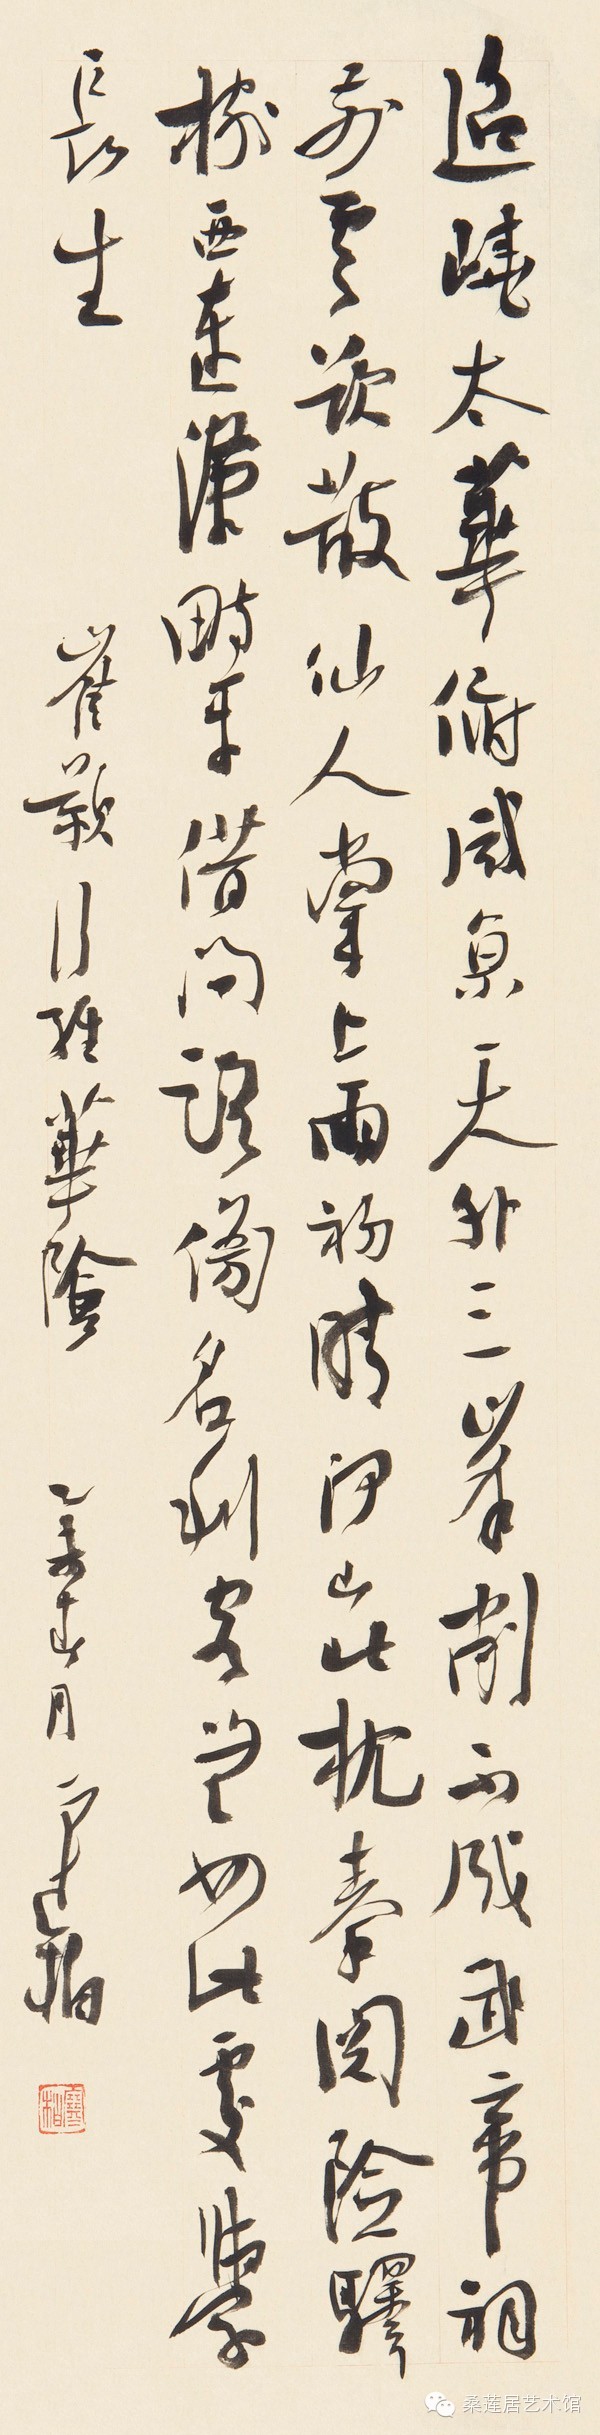 迢嶢太華俯咸京天外三峯削不成武帝祠
前雲欲散仙人掌上雨初晴河山北枕秦關險驛
樹西連漢畤平借問路傍名利客無如此處學
長生
崔顥行經華陰
乙未春月
桑莲居艺术馆